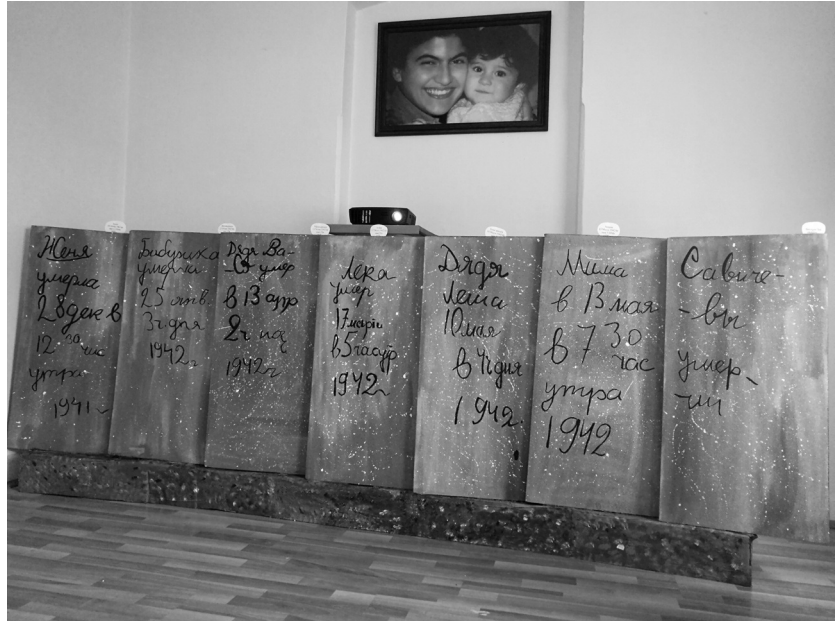 Женя
умерла
28 дек в
12 00 час
утра
1941 г
Бабушка
умерла
25 янв.
3ч дня
1942 г
Дядя Ва-
-ся умер
в 13 апр
2ч ноч
1942 г
Лека
умер
17 марта
в 5 час утр
1942 г
Дядя
Леша
10 мая
в 4ч дня
1942
Мама
в 13 мая
в 7 30
час
утра
1942
Савиче-
-вы
умер-
-ли